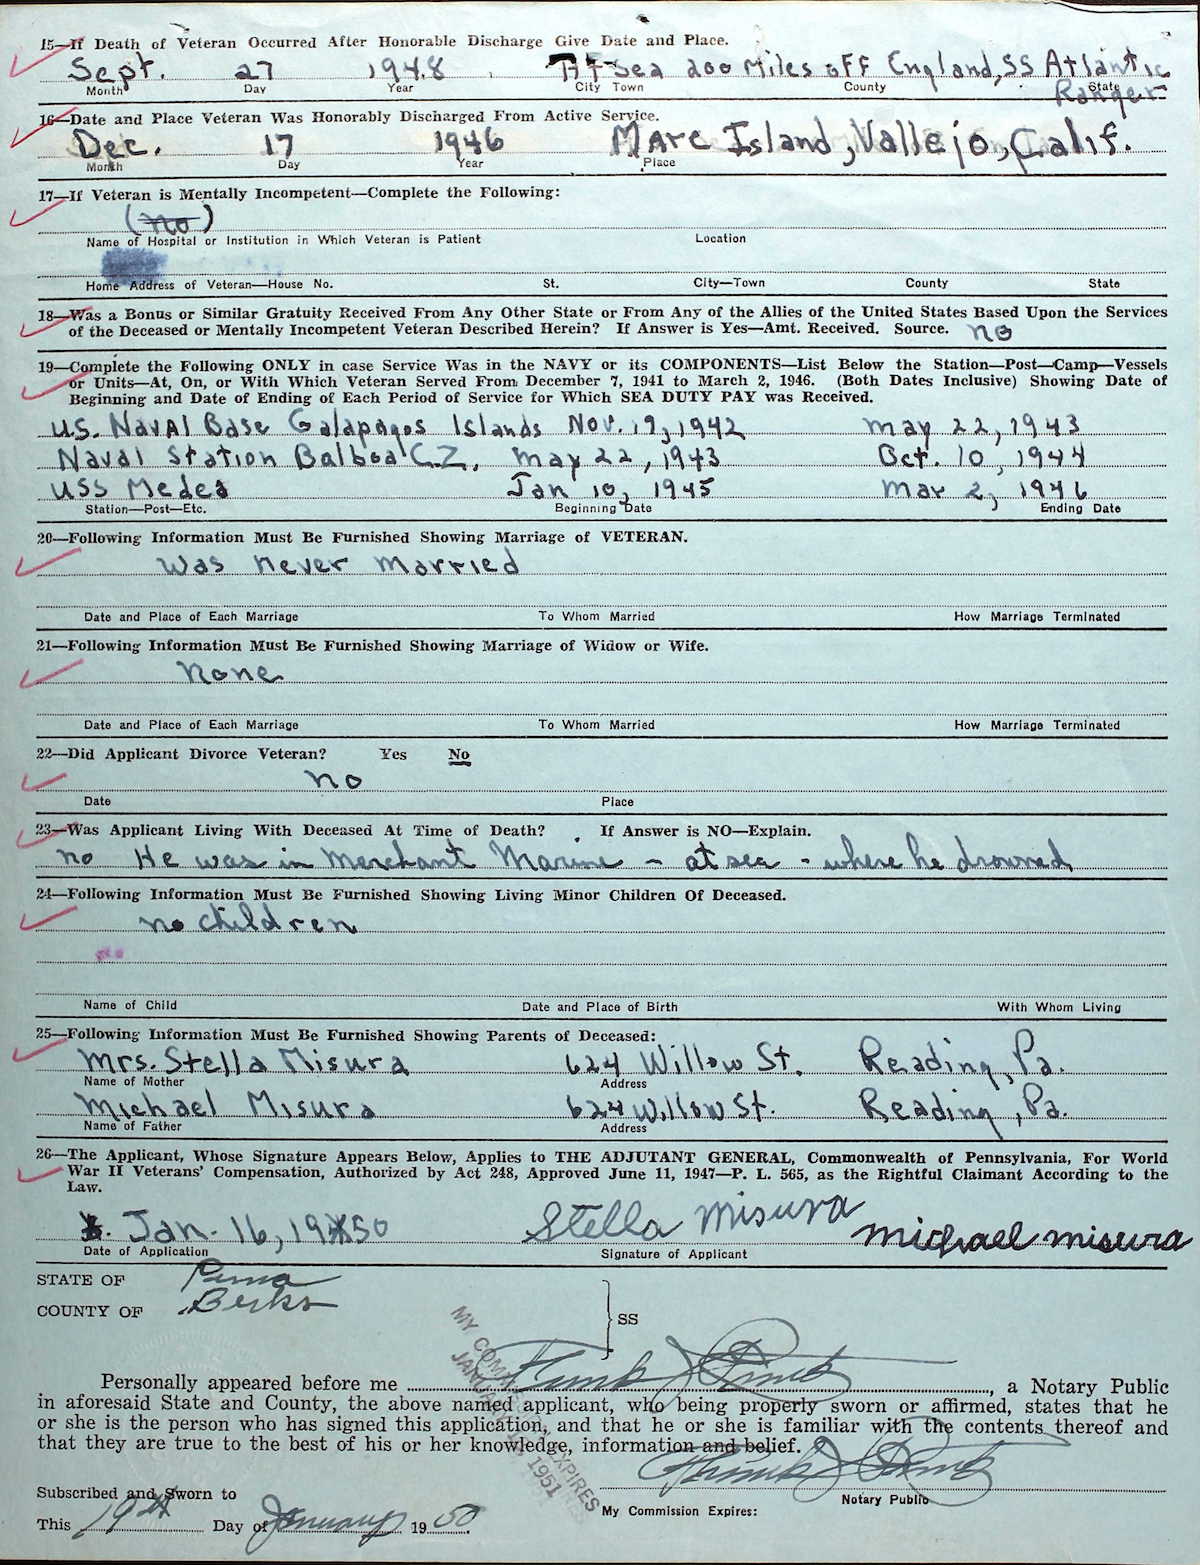 15—If Death of Veteran Occurred After Honorable Discharge Give Date and Place.
Sept. 27 1948 At Sea 200 Miles off England, SS Atlantic
Month Day Year City Town County State
Ranger
16—Date and Place Veteran Was Honorably Discharged From Active Service.
Dec. 17 1946 Mare Island, Vallejo, Calif.
Month Day Year Place
17—If Veteran is Mentally Incompetent—Complete the Following:
(no)
Name of Hospital or Institution in Which Veteran is Patient Location
Home Address of Veteran—House No. St. City—Town County State
18—Was a Bonus or Similar Gratuity Received From Any Other State or From Any of the Allies of the United States Based Upon the Services
of the Deceased or Mentally Incompetent Veteran Described Herein? If Answer is Yes—Amt. Received. Source. no
19—Complete the Following ONLY in case Service Was in the NAVY or its COMPONENTS—List Below the Station—Post—Camp—Vessels
or Units—At, On, or With Which Veteran Served From December 7, 1941 to March 2, 1946. (Both Dates Inclusive) Showing Date of
Beginning and Date of Ending of Each Period of Service for Which SEA DUTY PAY was Received.
U.S. Naval Base Galapagos Islands Nov. 19, 1942 May 22, 1943
Naval Station Balboa C.Z. May 22, 1943 Oct. 10, 1944
USS Medea Jan 10, 1945 Mar 2, 1946
Station—Post—Etc. Beginning Date Ending Date
20—Following Information Must Be Furnished Showing Marriage of VETERAN.
Was never married
Date and Place of Each Marriage To Whom Married How Marriage Terminated
21—Following Information Must Be Furnished Showing Marriage of Widow or Wife.
None
Date and Place of Each Marriage To Whom Married How Marriage Terminated
22—Did Applicant Divorce Veteran? Yes No
no
Date Place
23—Was Applicant Living With Deceased At Time of Death? If Answer is NO—Explain.
no He was in Merchant Marine - at sea - where he drowned
24—Following Information Must Be Furnished Showing Living Minor Children Of Deceased.
no children
Name of Child Date and Place of Birth With Whom Living
25—Following Information Must Be Furnished Showing Parents of Deceased:
Mrs. Stella Misura 624 Willow St. Reading, Pa.
Name of Mother Address
Michael Misura 624 Willow St. Reading, Pa.
Name of Father Address
26—The Applicant, Whose Signature Appears Below, Applies to THE ADJUTANT GENERAL, Commonwealth of Pennsylvania, For World
War II Veterans' Compensation, Authorized by Act 248, Approved June 11, 1947—P. L. 565, as the Rightful Claimant According to the
Law.
Jan. 16, 1950 Stella Misura Michael Misura
Date of Application Signature of Applicant
STATE OF Penna
COUNTY OF Berks
SS
MY COMMISSION EXPIRES
JANUARY 1951
Personally appeared before me Frank J, a Notary Public
in aforesaid State and County, the above named applicant, who being properly sworn or affirmed, states that he
or she is the person who has signed this application, and that he or she is familiar with the contents thereof and
that they are true to the best of his or her knowledge, information and belief.
Subscribed and Sworn to
Frank J
Notary Public
My Commission Expires:
This 19th Day of January 1950.